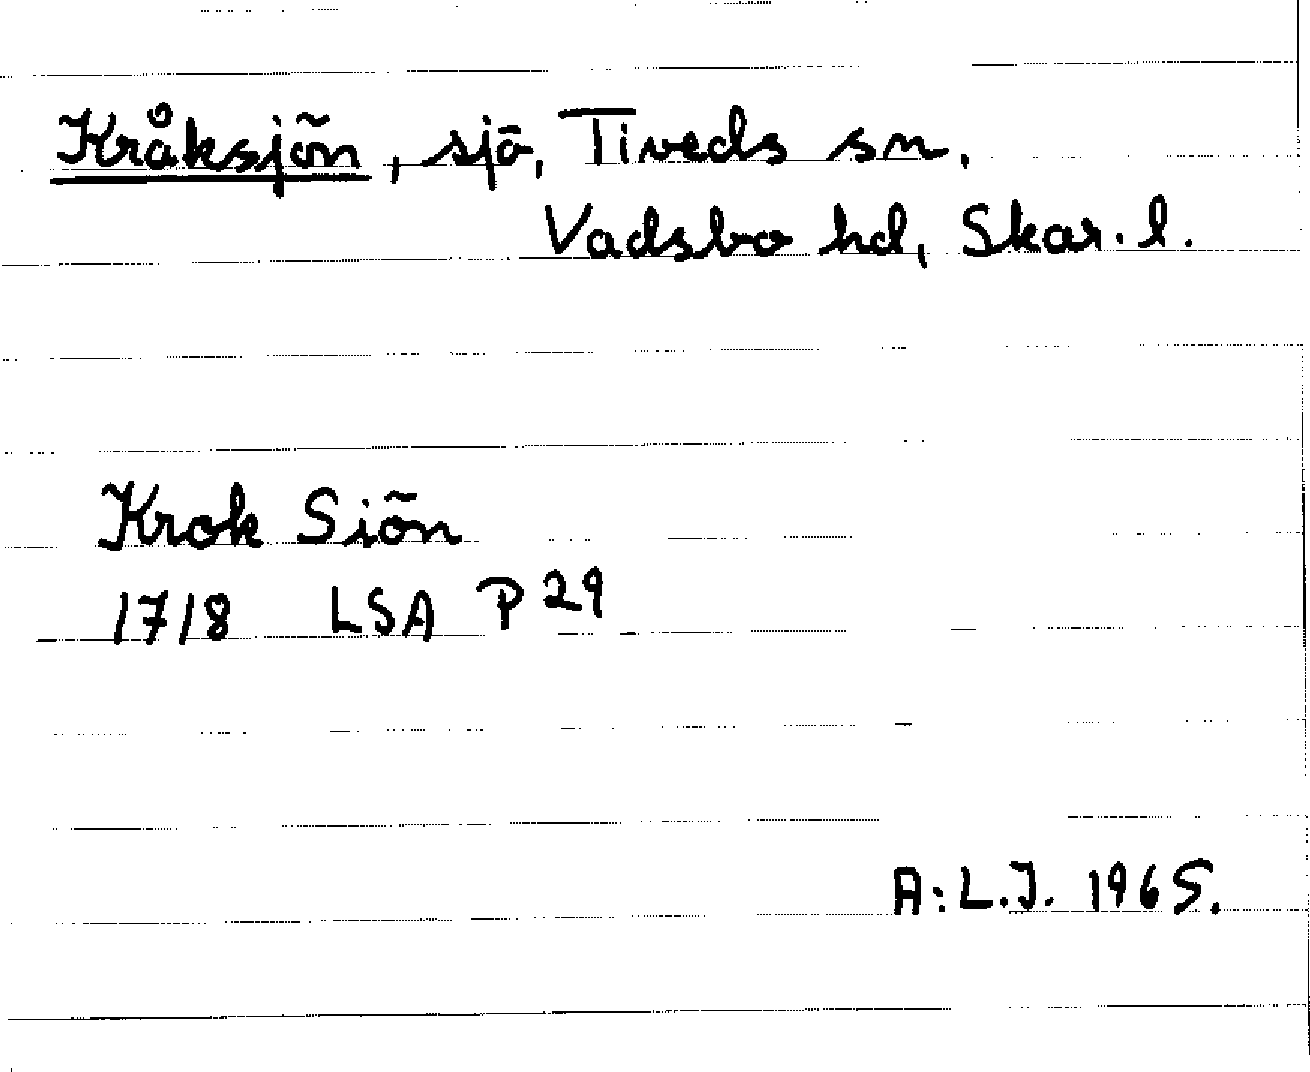 Kråksjön, sjö, Tiveds sn.
Vadsbo hd, Skar. l.
Krok Siön
1718 LSA P 29
A: L.J. 1965.